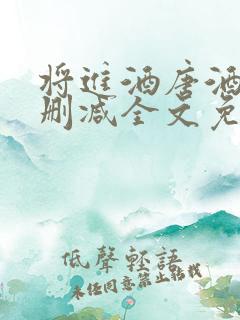 将进酒唐酒
删减全文免
低聲輕語
未经同意禁止转载